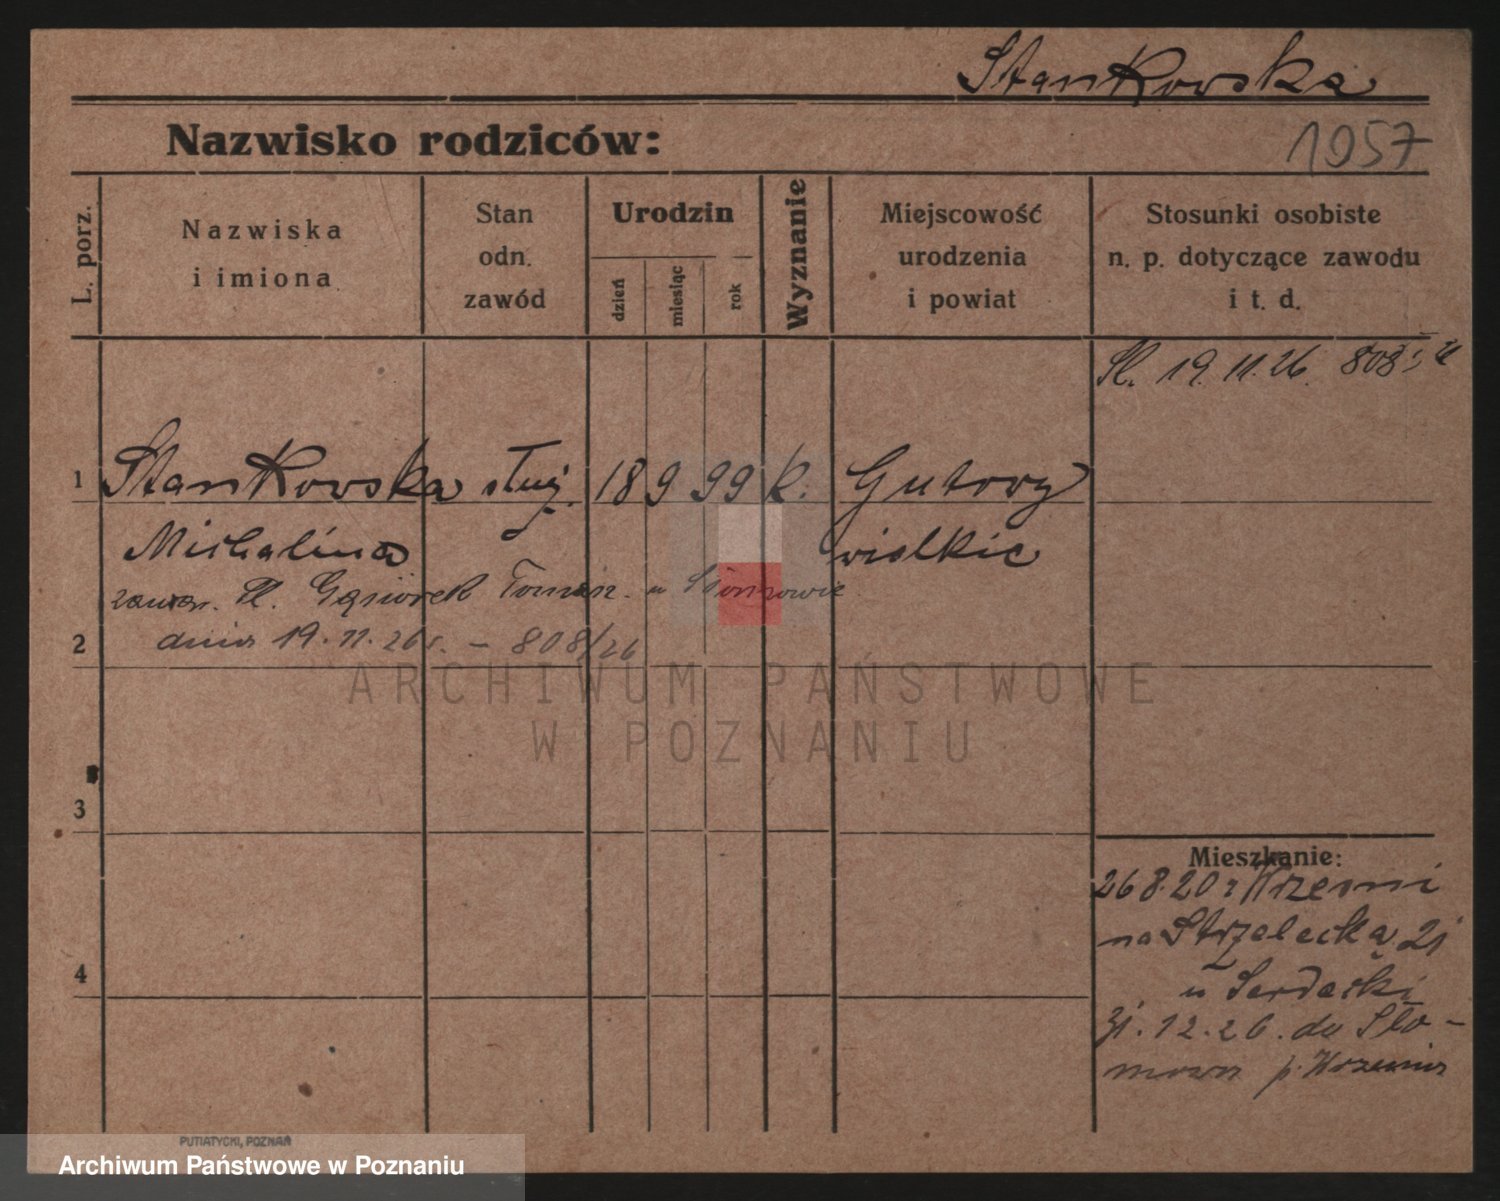 Stankowska
Nazwisko rodziców:
1957
L. porz.
Nazwiska
i imiona
Stan
odn.
zawód
Urodzin
dzień
miesiąc
rok
Wyznanie
Miejscowość
urodzenia
i powiat
Stosunki osobiste
n. p. dotyczące zawodu
i t. d.
Śl. 19.11.26. 808
1 Stankowska służ. 18 9 99 k. Gutowy
Michalina wielkie
Śl. Gąsiorek Tomasz. w
2 dnia 19.11.26 r. – 808/26
ARCHIWUM PAŃSTWOWE
W POZNANIU
3
Mieszkanie:
26 8.20 z Wrześni
na Strzelecką 21
4
u
31.12.26. do Sło-
mowa p. Września
PUTIATYCKI, POZNAŃ
Archiwum Państwowe w Poznaniu